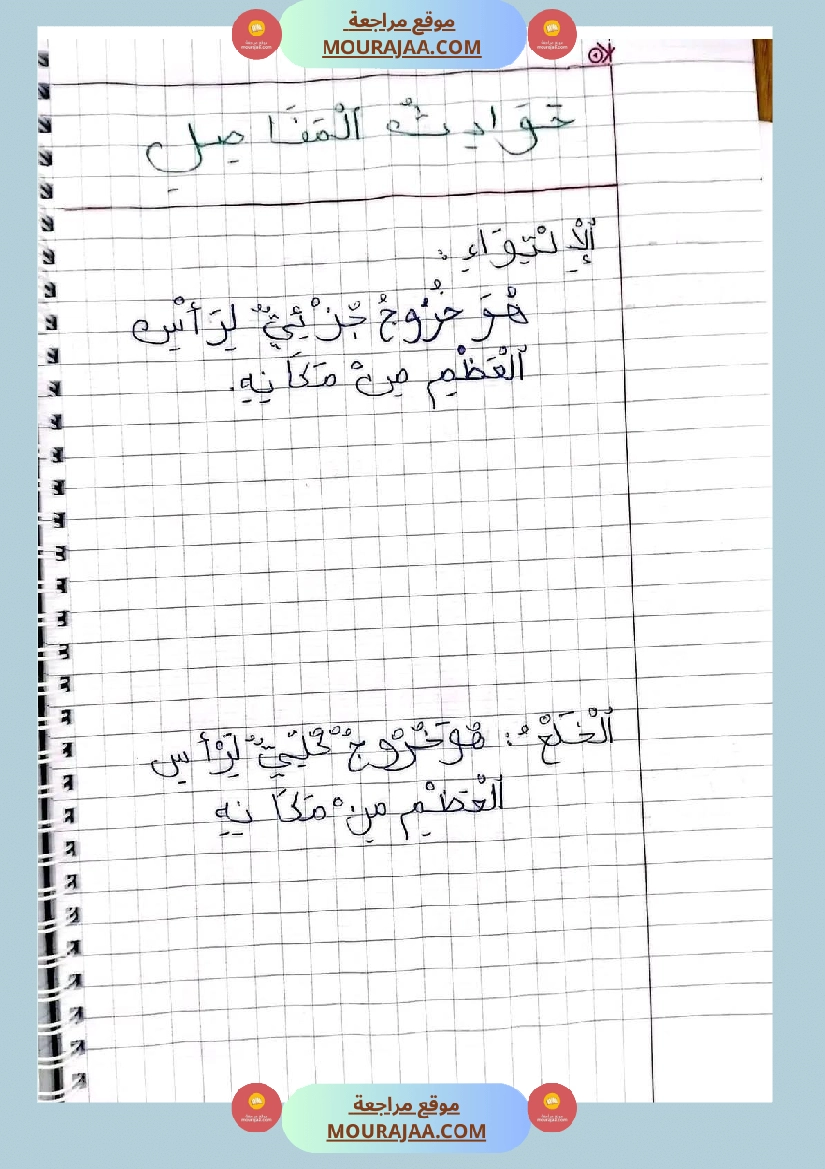 موقع مراجعة
MOURAJAA.COM
حَوَادِثُ ٱلْمَفَاصِلِ
ٱلْإِلْتِوَاءِ :
هُوَ خُرُوجُ جُزْئِيٌّ لِرَأْسِ
ٱلْعَظْمِ مِنْ مَكَانِهِ.
ٱلْخَلْعُ : هُوَ خُرُوجٌ كُلِّيٌّ لِرَأْسِ
ٱلْعَظْمِ مِنْ مَكَانِهِ
موقع مراجعة
MOURAJAA.COM